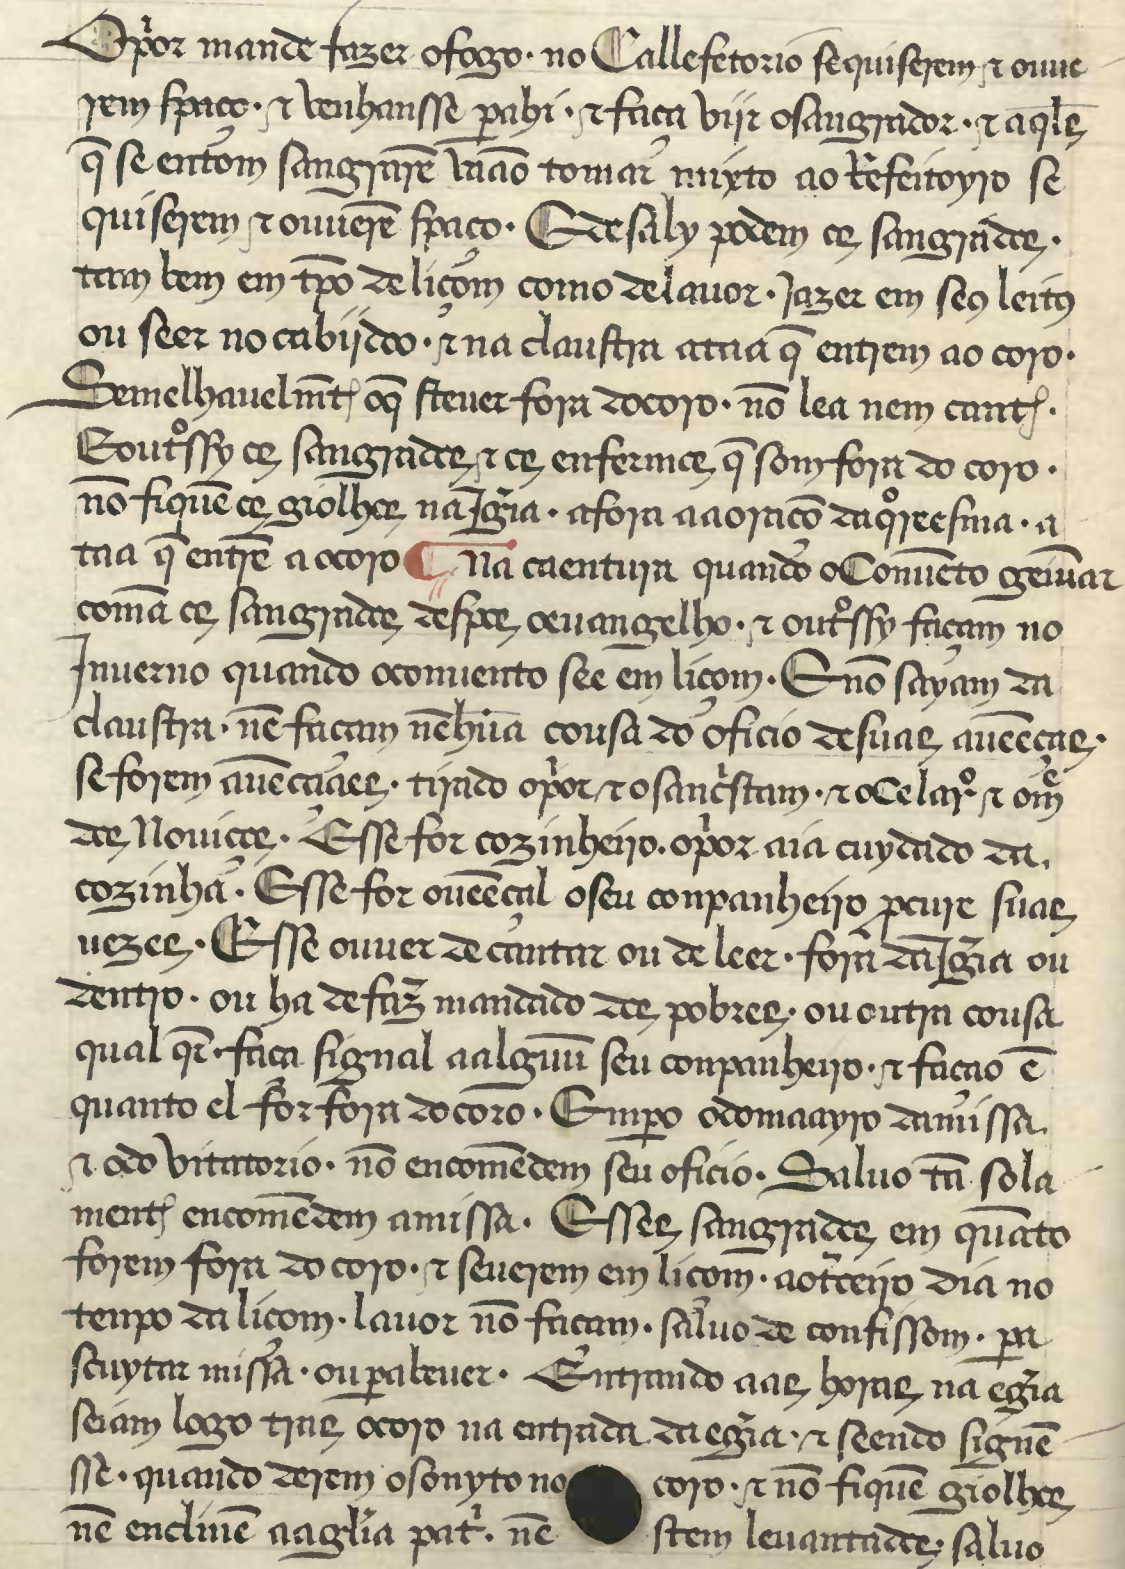 Op̃or mande fazer ofogo · no Callefetorio sequiserem ⁊ ouue
rem spaço · ⁊ venhansse pahi · ⁊ faça viir osangrador · ⁊ aq̃les
q̃ se entom sangrarẽ vaão tomar mixto ao Refeitoyro se
quiserem ⁊ ouuerẽ spaço · E desaly podem os sangrados ·
tam bem em tp̃o deliçom como delauor · Jazer em seus leitos
ou seer no cabijdoo · ⁊ na claustra ataa q̃ entrem ao coro ·
Semelhauelmẽt oq̃ steuer fora docoro · nõ lea nem cant ·
Eoutrossy os sangrados ⁊ os enfermos q̃ som fora do coro ·
nõ fiquẽ os giolhos na Igr̃ia · afora aaoraçõ daqoreesma · a
taa q̃ entrẽ aocoro ¶ Na caentura quando oConuẽto geiũar
comã os sangrados despos oeuangelho · ⁊ outrossy façam no
Inuerno quando oconuento see em liçom · E nõ sayam da
claustra · nẽ façam nẽhũa cousa do oficio desuas auẽẽças ·
se forem auẽẽçaaes · tirado op̃or ⁊ o sancristam · ⁊ oCelaro ⁊ omẽ
dos Nouiços · Esse for cozinheiro · op̃or aia cuydado da
cozinha · Esse for ouẽẽçal oseu conpanheiro pcure suas
uezes · Esse ouuer decantar ou de leer · fora daIgr̃ia ou
dentro · ou ha de faz mandado dos pobres · ou outra cousa
qual qr · faça signal aalguũ seu conpanheiro · ⁊ façao ẽ
quanto el for fora docoro · Empo odomaayro damissa
⁊ odo vitatorio · nõ encomẽdem seu oficio · Saluo tã sola
ment encomẽdem amissa · Esses sangrados em quãto
forem fora do coro · ⁊ seuerem em liçom · aotrceiro dia no
tenpo da liçom · lauor nõ façam · saluo de confissom · pa
scuytar missa · ou pabeuer · Entrando aas horas na egr̃ia
seiam logo tras ocoro na entrada da egr̃ia · ⁊ seendo signẽ
sse · quando derem osonyto no coro · ⁊ nõ fiquẽ giolhos
nẽ enclinẽ aaglr̃ia patr · nẽ stem leuantados · saluo